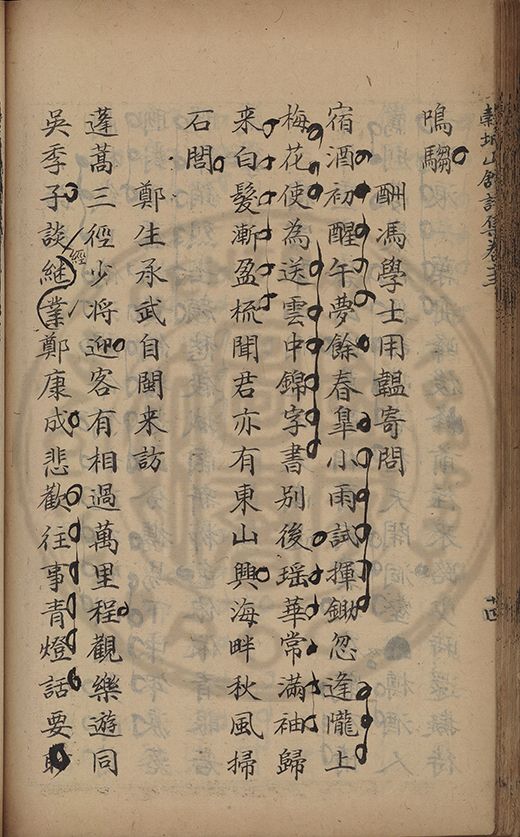 鳴騶
酬馮學士用韞寄問
宿酒初醒午夢餘春皐小雨試揮鋤忽逢隴上
梅花使為送雲中錦字書別後瑶華常滿袖歸
来白髮漸盈梳聞君亦有東山興海畔秋風掃
石閭
鄭生承武自閩来訪
蓬蒿三徑少將迎客有相過萬里程觀樂遊同
吳季子談継業鄭康成悲歡往事青燈話要
經
山館詩集卷
十四